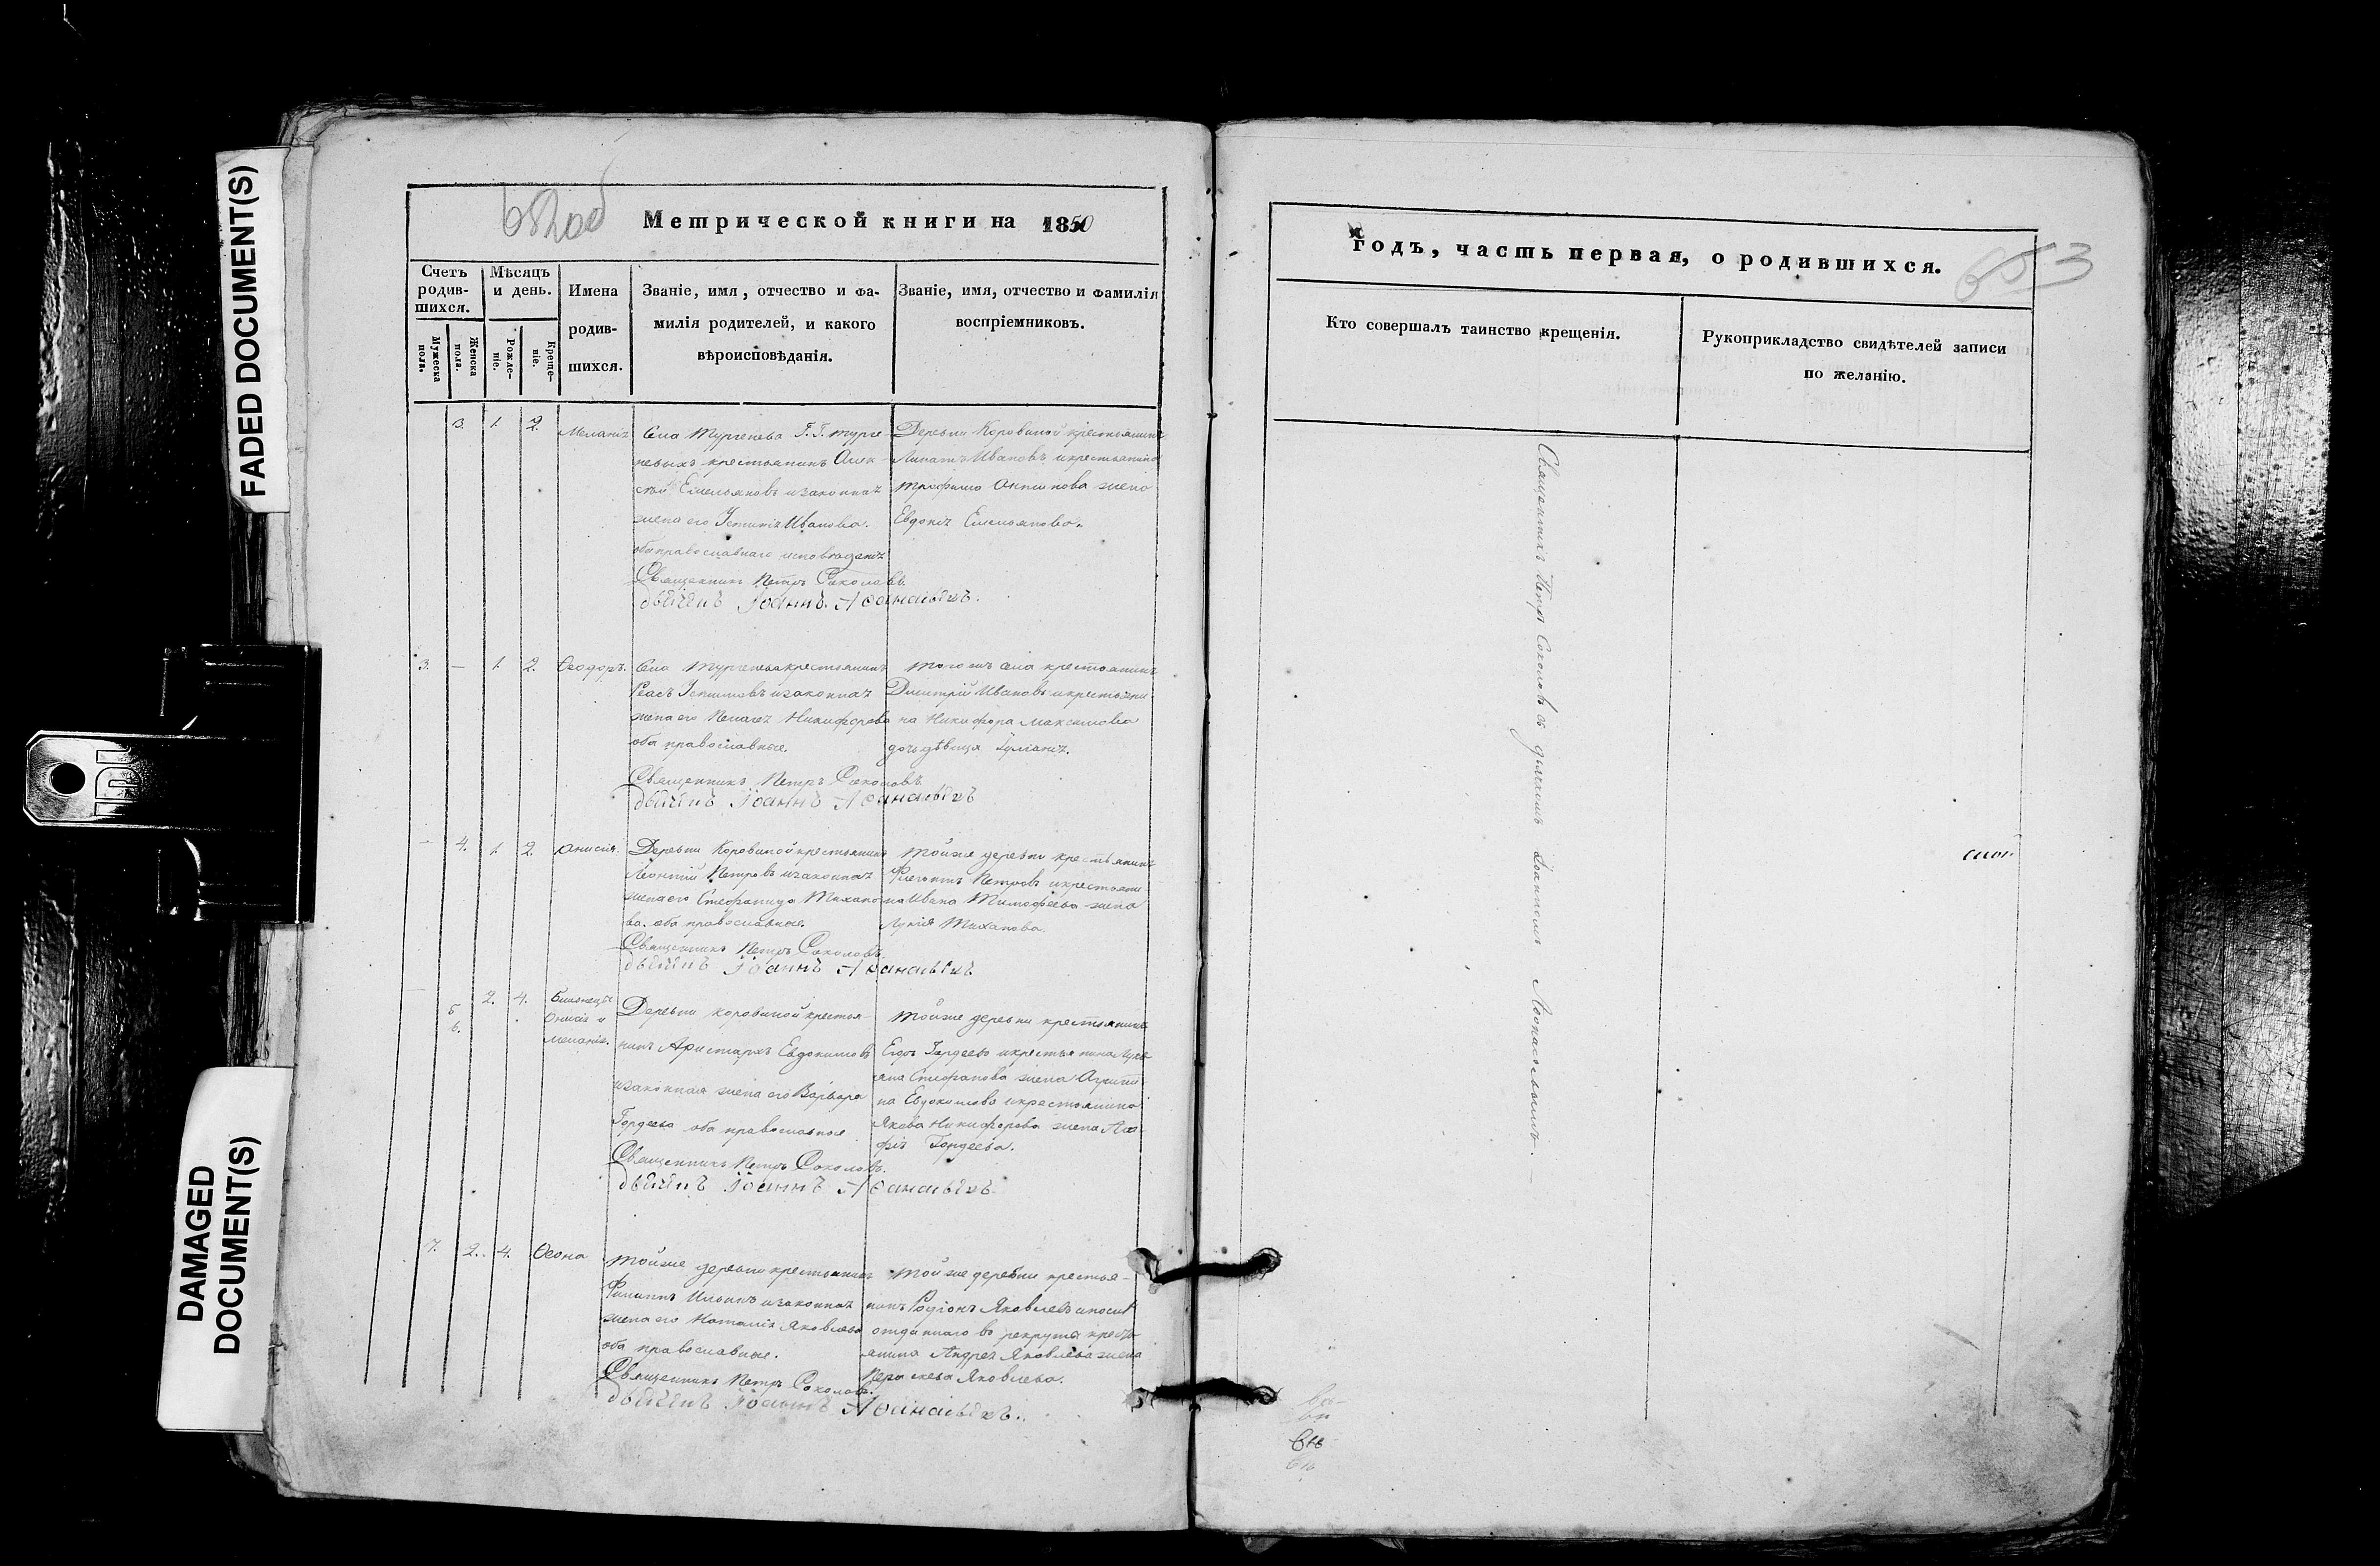 FADED DOCUMENT(S)
DAMAGED
DOCUMENT(S)
652об
Метрической книги на 1850
Счетъ
родив-
шихся.
Мужеска
пола.
Женска
пола.
Мѣсяцъ
и день.
Рожде-
ніе.
Креще-
ніе.
Имена
родив-
шихся.
Званіе, имя, отчество и фа-
милія родителей, и какого
вѣроисповѣданія.
Званіе, имя, отчество и фамилія
воспріемниковъ.
3. 1. 2.
Меланія
Села Тургенева Г.Г. Турге-
невыхъ крестьянинъ Алек-
сѣй Емельяновъ и законная
жена его Устинія Иванова.
оба православнаго исповѣданія
Священникъ Петръ Соколовъ
Дьяченъ Іоаннъ Аѳанасьевъ.
Деревни Коровиной крестьянинъ
Ипатъ Ивановъ и крестьянина
Трофима Антипова жена
Евдокія Емельянова.
3. — 1. 2.
Ѳеодоръ.
Села Тургенева крестьянинъ
Устимовъ и законная
жена его Пелагея Никифорова
оба православные.
Священникъ Петръ Соколовъ
Дьяченъ Іоаннъ Аѳанасьевъ
Того жъ села крестьянинъ
Димитрій Ивановъ и крестьяни-
на Никифора Максимова
дочь дѣвица Іуліанія.
— 4. 1. 2.
Анисія.
Деревни Коровиной крестьянинъ
Леонтій Петровъ и законная
жена его Стефанида Тихано-
ва. оба православные.
Священникъ Петръ Соколовъ.
Дьяченъ Іоаннъ Аѳанасьевъ
Той же деревни крестьянинъ
Флегонтъ Петровъ и крестьяни-
на Ивана Тимофеева жена
Лукія Тиханова.
5 2. 4.
6.
Близнецы
Онисія и
Меланія.
Деревни Коровиной крестья-
нинъ Аристархъ Евдокимовъ
и законная жена его Варвара
Гордеева оба православные
Священникъ Петръ Соколовъ.
Дьяченъ Іоаннъ Аѳанасьевъ.
Той же деревни крестьянинъ
Егоръ Гордеевъ и крестьянина Луки-
яна Стефанова жена Агрипи-
на Евдокимова и крестьянина
Якова Никифорова жена Ага-
фія Гордеева.
7. 2. 4.
Ѳеона
Той же деревни крестьянинъ
Филиппъ Ильинъ и законная
жена его Наталія Яковлева
оба православные.
Священникъ Петръ Соколовъ.
Дьяченъ Іоаннъ Аѳанасьевъ.
Той же деревни крестья-
нинъ Родіонъ Яковлевъ и послѣ
отданнаго въ рекруты кресть-
янина Андрея Яковлева жена
Яковлева.
годъ, часть первая, о родившихся.
653
Кто совершалъ таинство крещенія.
Рукоприкладство свидѣтелей записи
по желанію.
Священникъ Петръ Соколовъ съ дьячкомъ Іоанномъ Аѳонасьевымъ.